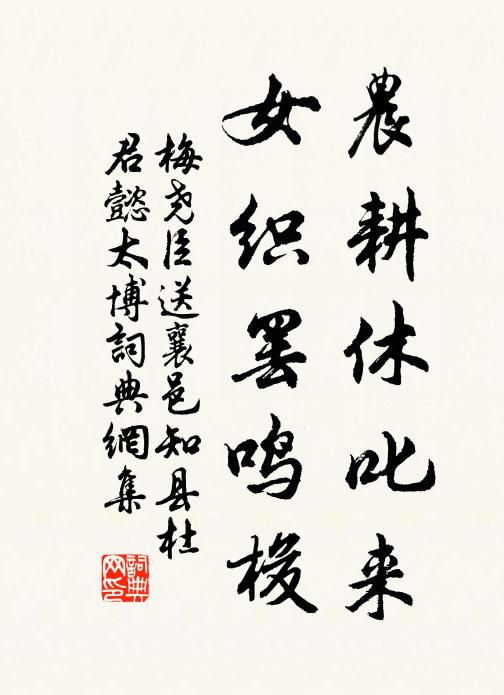 農耕休叱来
女织罢鸣梭
梅尧臣送襄邑知县杜
君懿太博詞典網集
詞典
网印